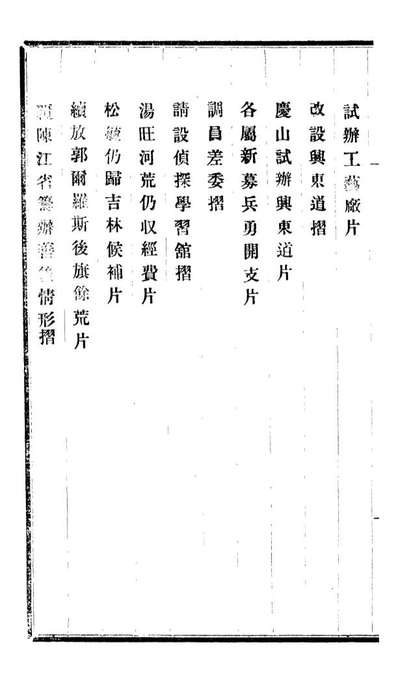 試辦工藝廠片
改設興東道摺
慶山試辦興東道片
各屬新募兵勇開支片
調員差委摺
請設偵探學習舘摺
湯旺河荒仍収經費片
松毓仍歸吉林候補片
續放郭爾羅斯後旗餘荒片
陳江省辦情形摺